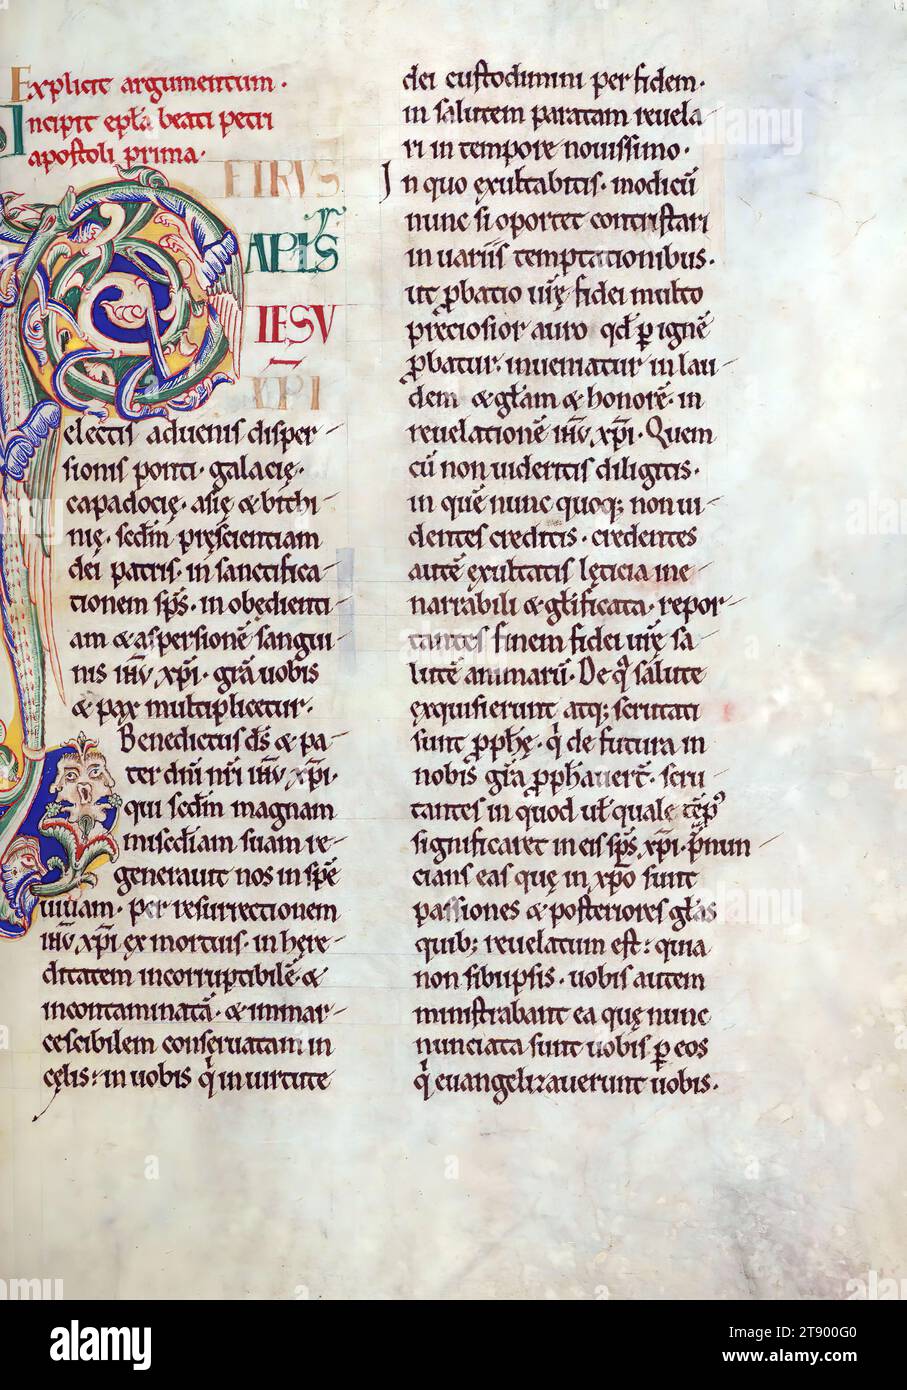 Explicit argumentum.
Incipit epła beati petri
apostoli prima.
ETRVS
APLS
IESV
XPI
electis aduenis disper-
sionis ponti. galacię.
capadocię. asię & bithi-
nię. scdm pręscientiam
dei patris. in sanctifica-
tionem sps. in obędienti-
am & aspersionē sangui-
nis ihu xpi. gra uobis
& pax multiplicetur.
Benedictus ds & pa-
ter dni nri ihu xpi.
qui scdm magnam
miscdiam suam re-
generauit nos in spē
uiuam. per resurrectionem
ihu xpi ex mortuis. in hęre-
ditatem incorruptibilē. &
incontaminatā. & inmar-
cescibilem conseruatam in
cęlis. in uobis q in uirtute
dei custodimini per fidem.
in salutem paratam reuela-
ri in tempore nouissimo.
In quo exultabitis. modicū
nunc si oportet contristari
in uariis temptationibus.
ut pbatio urę fidei multo
preciosior auro qd p ignē
pbatur. inueniatur in lau-
dem & glam & honorē. in
reuelationē ihu xpi. Quem
cū non uideritis diligitis.
in quē nunc quoq; non ui-
dentes creditis. credentes
autē exultatis lęticia ine-
narrabili & glificata. repor-
tantes finem fidei urę sa-
lutē animarū. De q salute
exquisierunt atq; scrutati
sunt pphę. q de futura in
nobis gra pphauert. scru-
tantes in quod ul quale tēps
significaret in eis sps xpi. pnun-
cians eas quę in xpo sunt
passiones & posteriores glas
quib; reuelatum est: quia
non sibi ipsis. uobis autem
ministrabant ea quę nunc
nunciata sunt uobis p eos
q euangelizauerunt uobis.
alamy
Image ID: 2T900G0
www.alamy.com